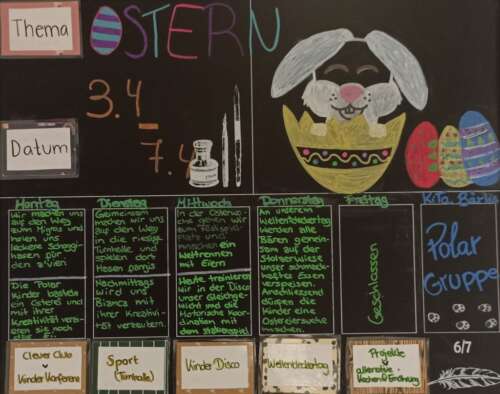 Thema
OSTERN
3.4
–
7.4
Datum
Montag
Wir machen uns
auf den Weg
zum Migros und
holen uns
leckere Schoggi-
hasen für
den z'vieri
Die Polar
Kinder basteln
ein Osterei und
mit ihrer
Kreativität verzie-
ren sie noch
Dienstag
Gemeinsam
machen wir uns
auf den Weg
in die riesige
Turnhalle und
spielen dort
Hasen gangis
Nachmittags
wird uns
Bianca mit
ihrer Kreativi-
tät verzaubern.
Mittwoch
In der Osterwo-
che gehen wir
zum
platz und
machen ein
Wettrennen
mit Eiern
Heute trainieren
wir in der Disco
unser Gleichge-
wicht und die
Motorische Koor-
dination mit
dem
Donnerstag
An unserem
Weltenkindertag
werden alle
Bären gemein-
sam auf der
unser schmack-
haftes Essen
verspeisen.
Anschliessend
dürfen die
Kinder eine
Ostereiersuche
machen.
Freitag
Geschlossen
Kita Bärli
Polar
Gruppe
6/7
Clever Club
Kinder Konferenz
Sport
(Turnhalle)
Kinder Disco
Weltenkindertag
Projekte
alternative
Kochen/Ernährung